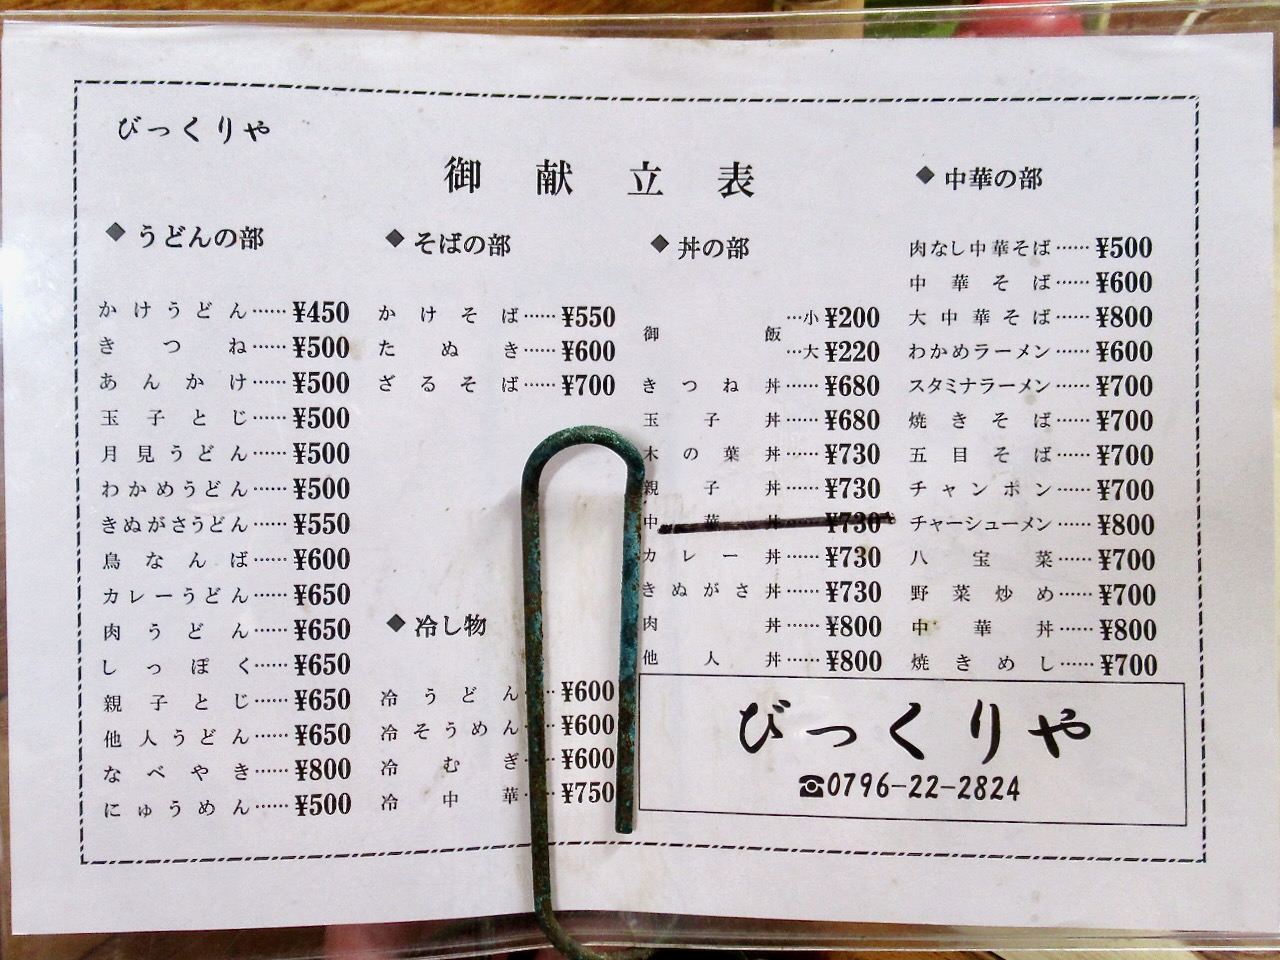 びっくりや
御献立表
◆うどんの部
かけうどん……¥450
きつね……¥500
あんかけ……¥500
玉子とじ……¥500
月見うどん……¥500
わかめうどん……¥500
きぬがさうどん……¥550
鳥なんば……¥600
カレーうどん……¥650
肉うどん……¥650
しっぽく……¥650
親子とじ……¥650
他人うどん……¥650
なべやき……¥800
にゅうめん……¥500
◆そばの部
かけそば……¥550
たぬき……¥600
ざるそば……¥700
◆冷し物
冷うどん……¥600
冷そうめん……¥600
冷むぎ……¥600
冷中華……¥750
◆丼の部
御飯…小¥200
…大¥220
きつね丼……¥680
玉子丼……¥680
木の葉丼……¥730
親子丼……¥730
中華丼……¥730
カレー丼……¥730
きぬがさ丼……¥730
肉丼……¥800
他人丼……¥800
◆中華の部
肉なし中華そば……¥500
中華そば……¥600
大中華そば……¥800
わかめラーメン……¥600
スタミナラーメン……¥700
焼きそば……¥700
五目そば……¥700
チャンポン……¥700
チャーシューメン……¥800
八宝菜……¥700
野菜炒め……¥700
中華丼……¥800
焼きめし……¥700
びっくりや
☎0796-22-2824